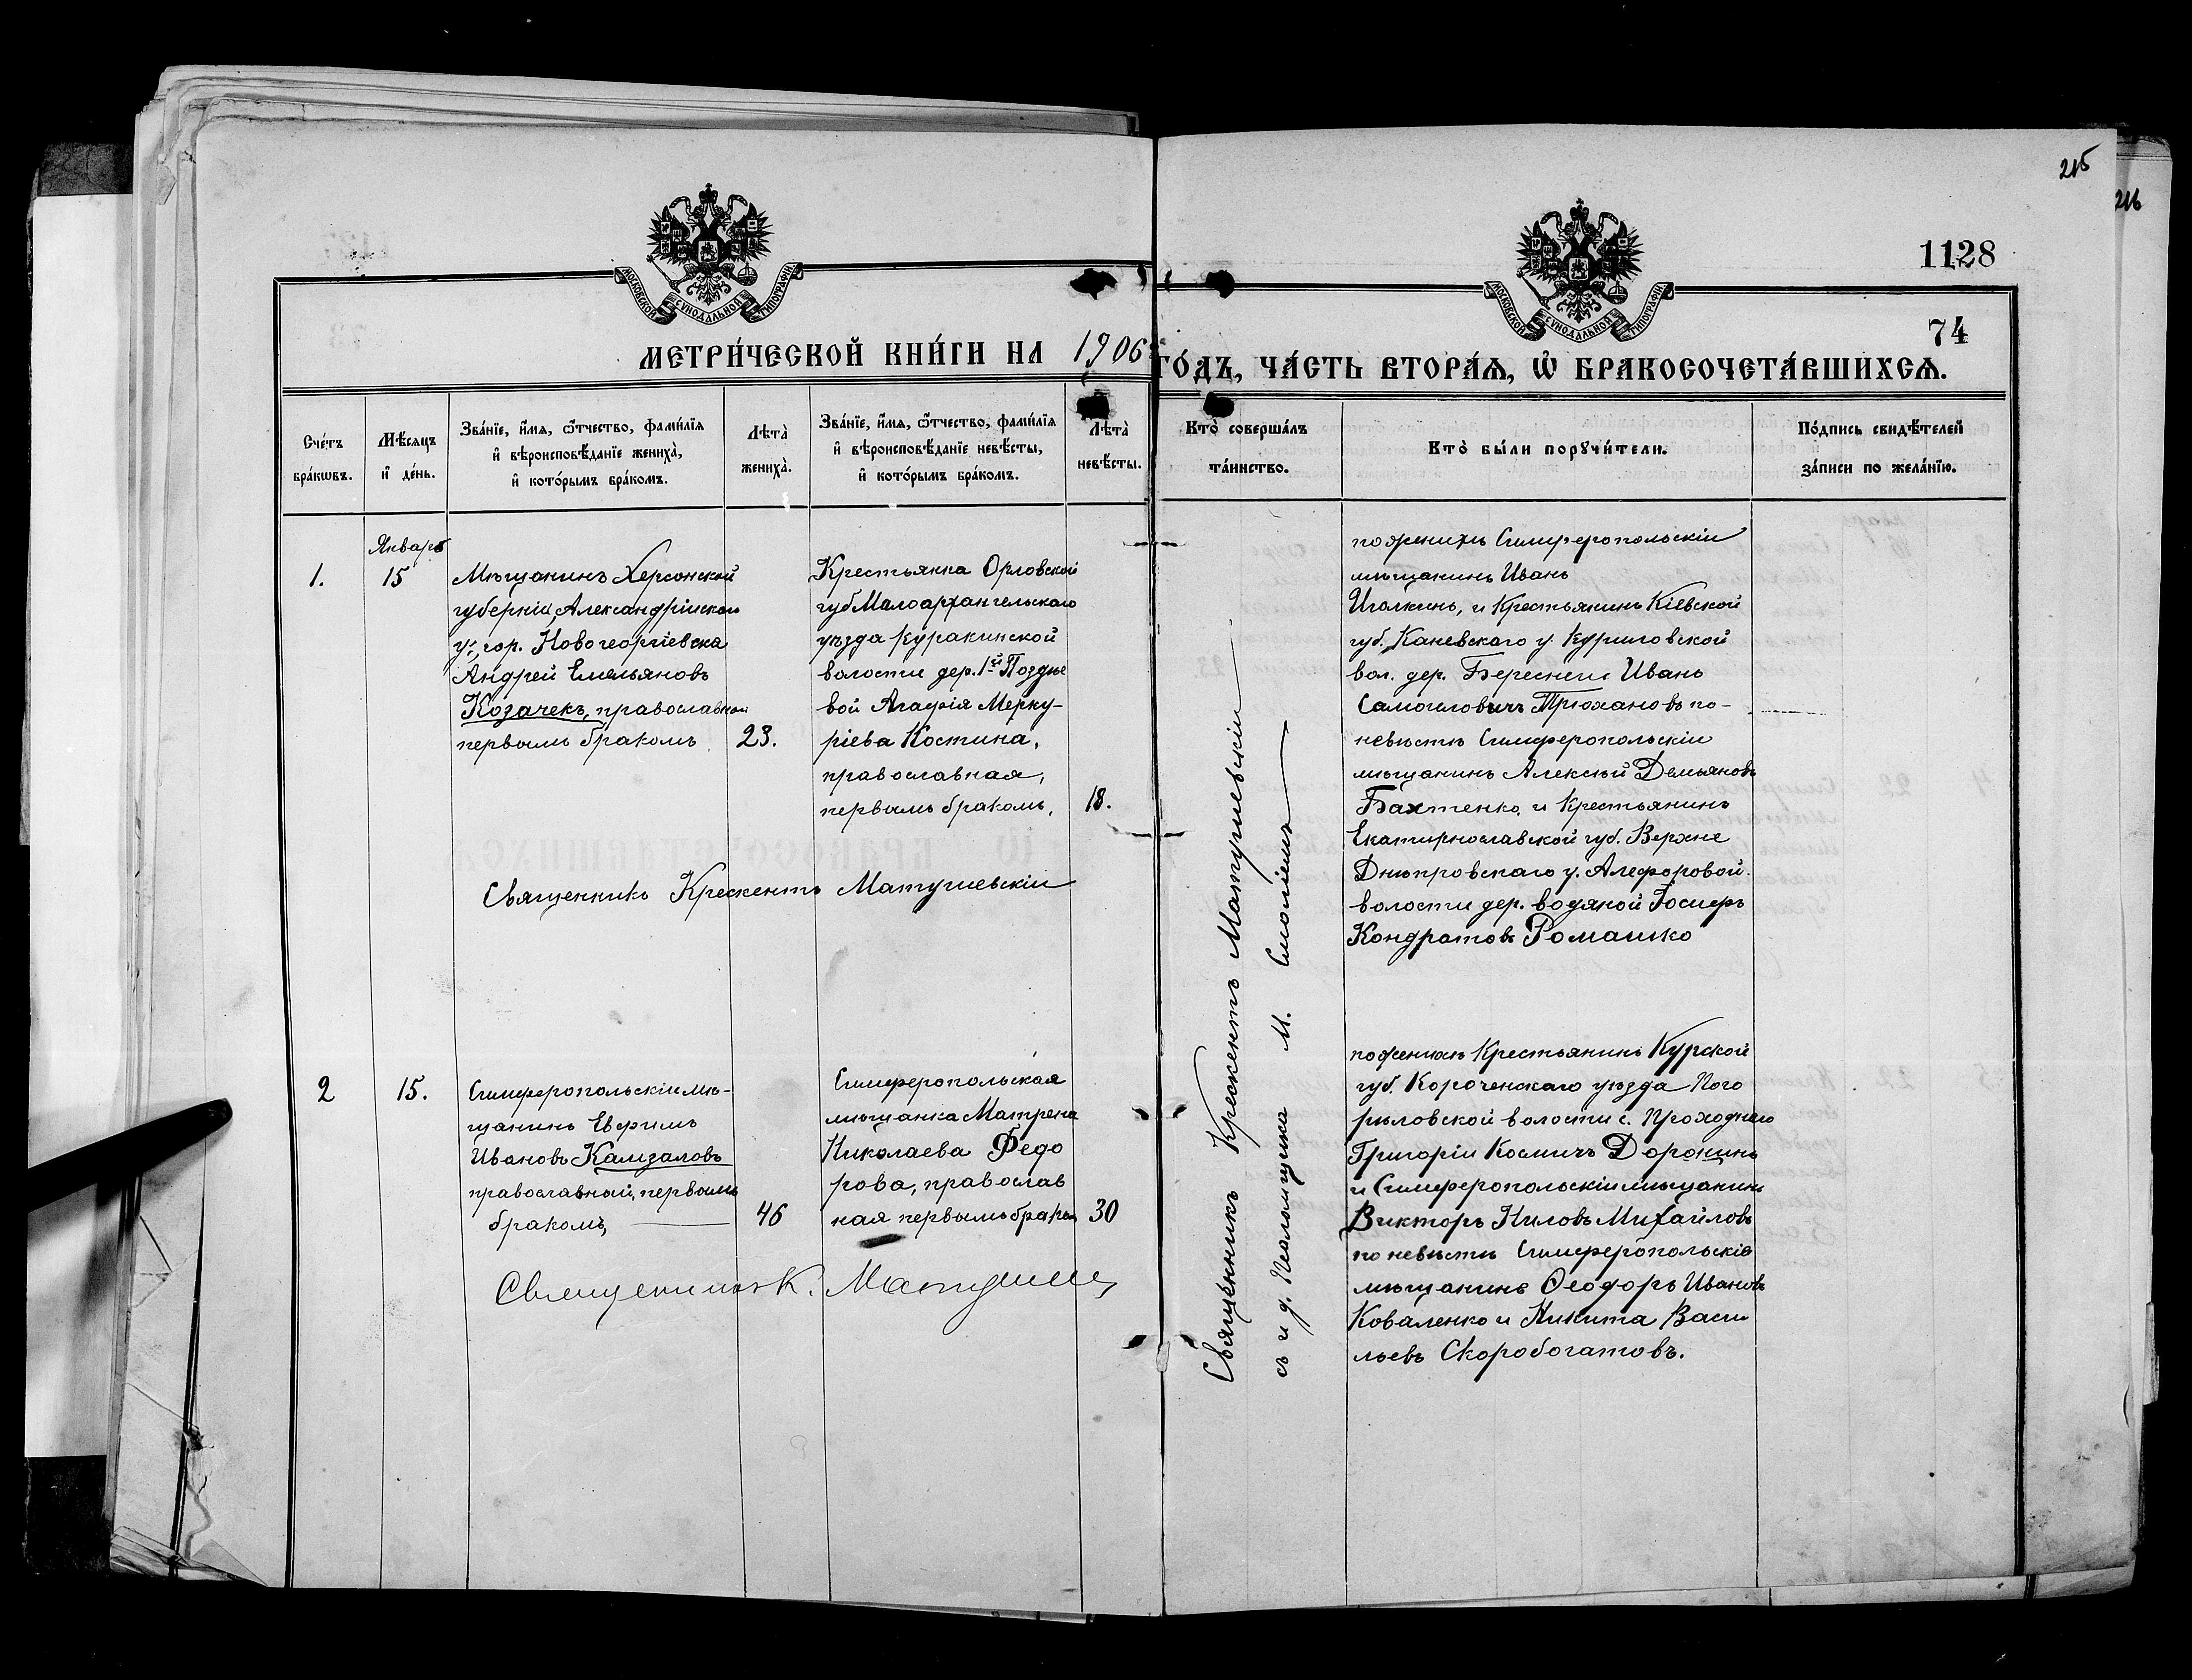 215
216
1128
74
МОСКОВСКОЙ СУНОДАЛЬНОЙ ТИПОГРАФІИ
МОСКОВСКОЙ СУНОДАЛЬНОЙ ТИПОГРАФІИ
МЕТРИ́ЧЕСКОЙ КНИ́ГИ НА 1906 ГО́ДЪ, ЧА́СТЬ ВТОРА́Ѧ, Ѡ҆ БРАКОСОЧЕТА́ВШИХСѦ.
Сче́тъ
бра́кѡвъ.
Мѣ́сяцъ
и҆ де́нь.
Зва́нїе, и҆́мѧ, ѻ҆́тчество, фами́лїѧ
и҆ вѣроисповѣ́данїе жениха̀,
и҆ кото́рымъ бра́комъ.
Лѣта̀
жениха̀.
Зва́нїе, и҆́мѧ, ѻ҆́тчество, фами́лїѧ
и҆ вѣроисповѣ́данїе невѣ́сты,
и҆ кото́рымъ бра́комъ.
Лѣта̀
невѣ́сты.
Кто̀ соверша́лъ
та́инство.
Кто̀ бы́ли порꙋчи́тели.
По́дпись свидѣ́телей
за́писи по жела́нїю.
1.
Январь
15
Мѣщанинъ Херсонской
губерніи, Александрійскаго
у. гор. Новогеоргіевска
Андрей Емельяновъ
Козачекъ, православный
первымъ бракомъ
23.
Крестьянка Орловской
губ Малоархангельскаго
уѣзда Куракинской
волости дер. 1й Поздѣе
вой Агафія Мерку-
ріева Костина,
православная,
первымъ бракомъ,
18.
Священникъ Крескентъ Матушевскій
Священникъ Крескентъ Матушевскій
съ и д. Псаломщика М. Смоліемъ
по женихѣ Симферопольскій
мѣщанинъ Иванъ
Иголкинъ, и Крестьянинъ Кіевской
губ. Каневскаго у. Куриловской
вол. дер. Береснеги Иванъ
Самоиловичъ Трюхановъ по-
невѣстѣ Симферопольскій
мѣщанинъ Алексѣй Демьяновъ
Бахтенко, и Крестьянинъ
Екатиринославской губ. Верхне
Днѣпровскаго у. Алеферовой
волости дер. водяной Іосифъ
Кондратовъ Ромашко
2
15.
Симферопольскій мѣ-
щанинъ Евфимъ
Ивановъ Камзаловъ
православный, первымъ
бракомъ,
46
Симферопольская
мѣщанка Матрена
Николаева Федо
рова, православ
ная первымъ бракомъ
30
Священникъ К. Матушевс
по женихѣ Крестьянинъ Курской
губ. Короченскаго уѣзда Пого
рѣловской волости с. Проходнаго
Григорій Космичъ Доронинъ
и Симферопольскій мѣщанинъ
Викторъ Ниловъ Михайловъ
по невѣстѣ Симферопольскіе
мѣщанинъ Ѳеодоръ Ивановъ
Коваленко и Никита Васи
льевъ Скоробогатовъ.